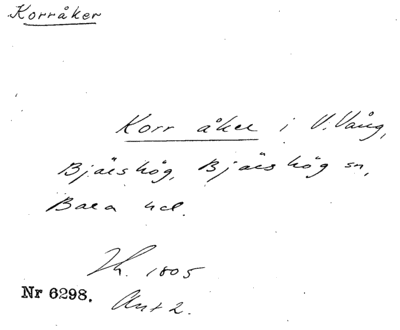 Korråker
Korr åker i V. Vång,
Bjärshög, Bjärshög sn,
Bara hd.
Sk. 1805
Nr 6298.
Ant 2.